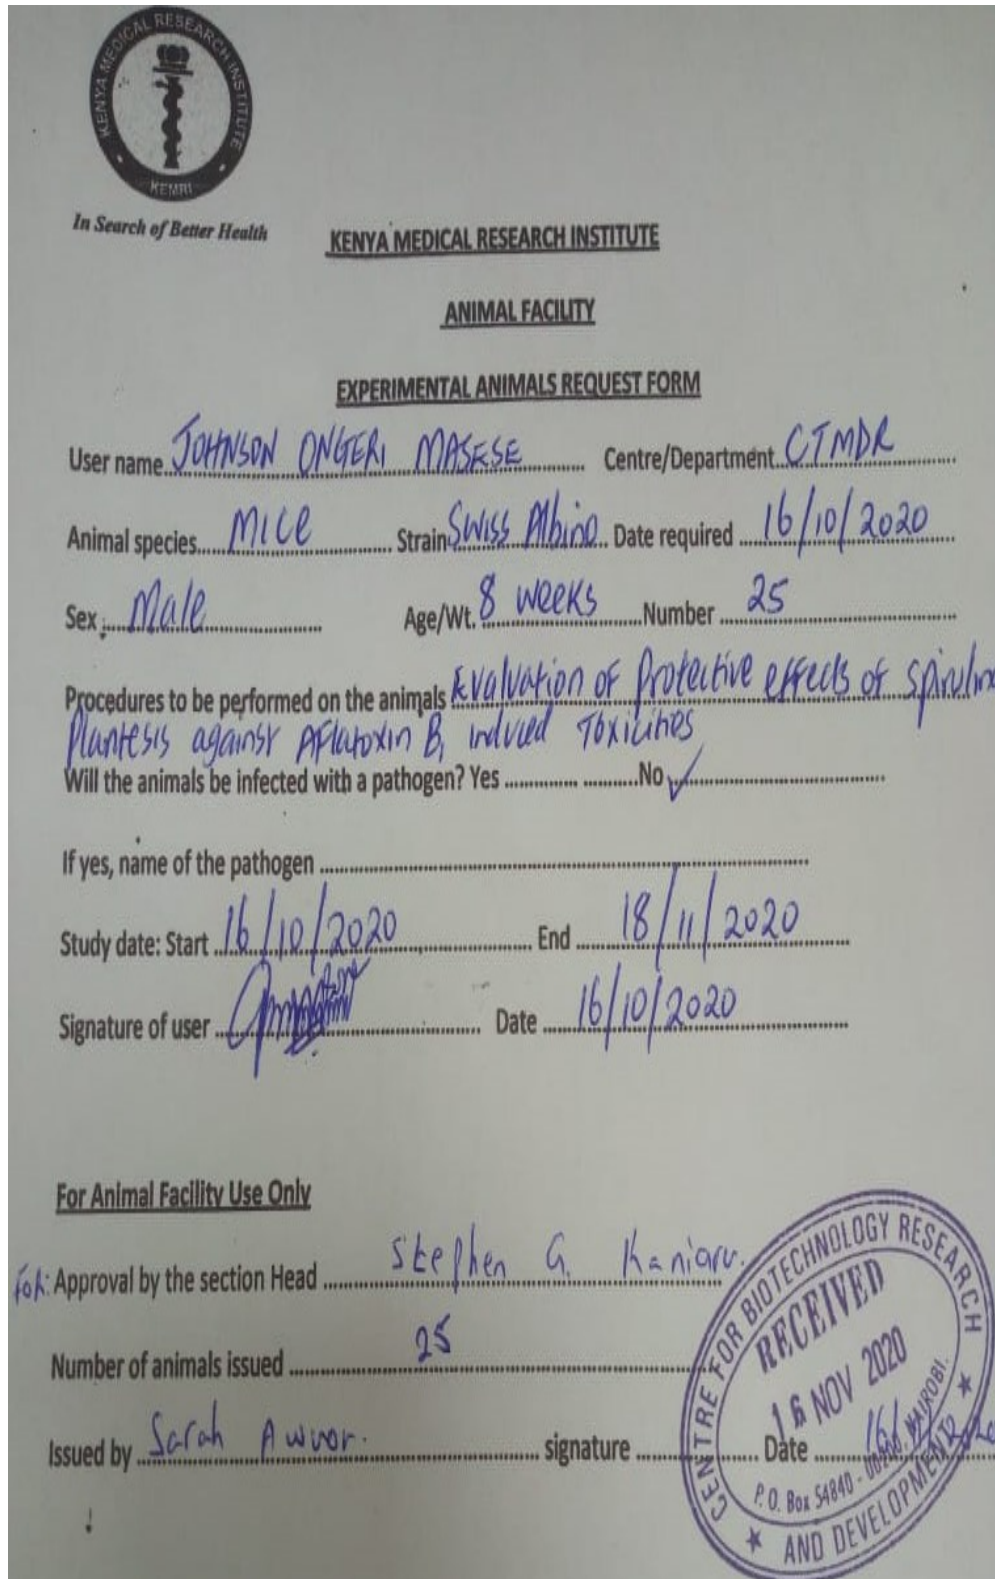 KENYA MEDICAL RESEARCH INSTITUTE
KEMRI
In Search of Better Health
KENYA MEDICAL RESEARCH INSTITUTE
ANIMAL FACILITY
EXPERIMENTAL ANIMALS REQUEST FORM
User name JOHNSON ONGERI MASESE Centre/Department CTMDR
Animal species MICE Strain Swiss Albino Date required 16/10/2020
Sex: Male Age/Wt. 8 weeks Number 25
Procedures to be performed on the animals Evaluation of Protective effects of Spirulina
Plantesis against Aflatoxin B1 induced Toxicities
Will the animals be infected with a pathogen? Yes ............. ..........No ✓
If yes, name of the pathogen
Study date: Start 16/10/2020 End 18/11/2020
Signature of user Date 16/10/2020
For Animal Facility Use Only
For: Approval by the section Head Stephen G. Kaniaru.
Number of animals issued 25
Issued by Sarah Awuor. signature Date 16/
CENTRE FOR BIOTECHNOLOGY RESEARCH
RECEIVED
16 NOV 2020
P.O. Box 54840 - NAIROBI.
AND DEVELOPMENT